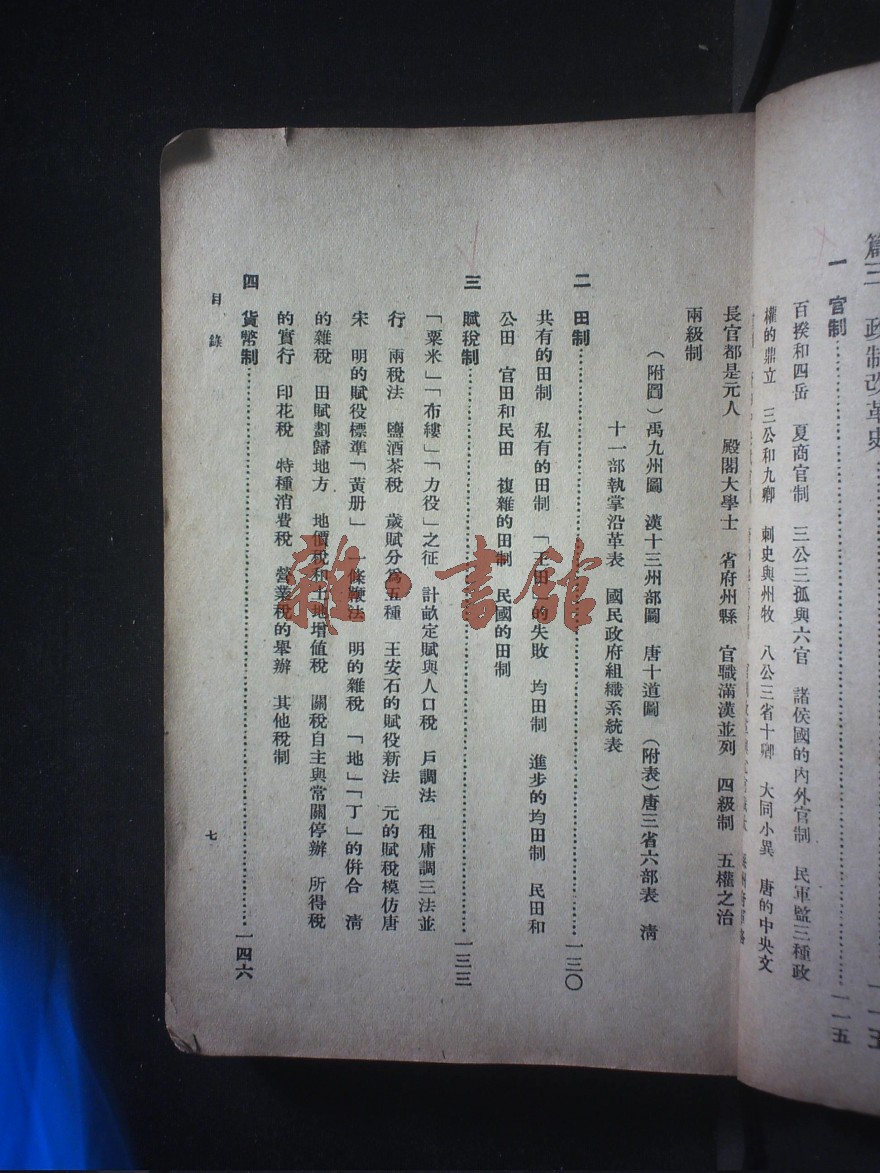 篇三 政制改革史……一一五
一 官制……一一五
百揆和四岳 夏商官制 三公三孤與六官 諸侯國的內外官制 民軍監三種政
權的鼎立 三公和九卿 刺史與州牧 八公三省十卿 大同小異 唐的中央文
長官都是元人 殿閣大學士 省府州縣 官職滿漢並列 四級制 五權之治
兩級制
(附圖)禹九州圖 漢十三州部圖 唐十道圖 (附表)唐三省六部表 淸
十一部執掌沿革表 國民政府組織系統表
二 田制……一三〇
共有的田制 私有的田制 「王田」的失敗 均田制 進步的均田制 民田和
公田 官田和民田 複雜的田制 民國的田制
三 賦稅制……一三三
「粟米」「布縷」「力役」之征 計畝定賦與人口稅 戶調法 租庸調三法並
行 兩稅法 鹽酒茶稅 歲賦分爲五種 王安石的賦役新法 元的賦稅模仿唐
宋 明的賦役標準「黃册」 一條鞭法 明的雜稅 「地」「丁」的併合 淸
的雜稅 田賦劃歸地方 地價稅和土地增値稅 關稅自主與常關停辦 所得稅
的實行 印花稅 特種消費稅 營業稅的舉辦 其他稅制
四 貨幣制……一四六
目錄
七
雜·書館